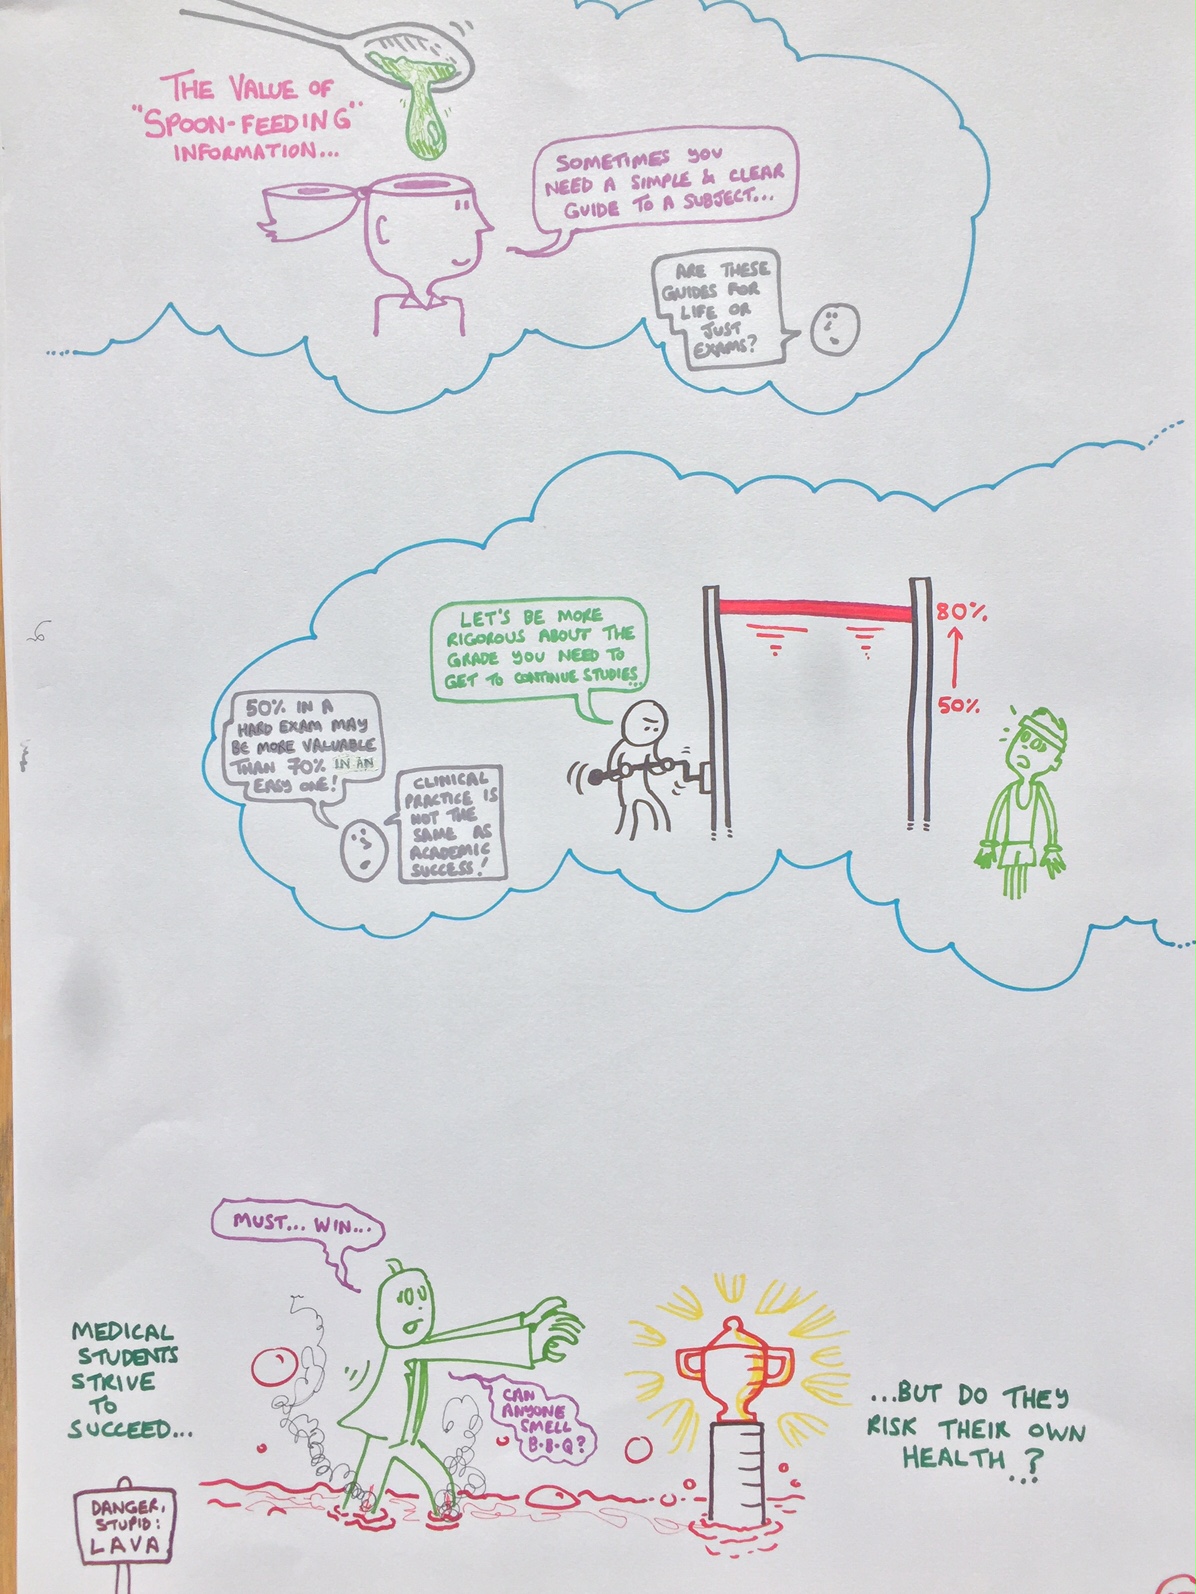 THE VALUE OF
"SPOON-FEEDING"
INFORMATION...
SOMETIMES YOU
NEED A SIMPLE & CLEAR
GUIDE TO A SUBJECT...
ARE THESE
GUIDES FOR
LIFE OR
JUST
EXAMS?
LET'S BE MORE
RIGOROUS ABOUT THE
GRADE YOU NEED TO
GET TO CONTINUE STUDIES...
80%
50%
50% IN A
HARD EXAM MAY
BE MORE VALUABLE
THAN 70% IN AN
EASY ONE!
CLINICAL
PRACTICE IS
NOT THE
SAME AS
ACADEMIC
SUCCESS!
MUST... WIN...
MEDICAL
STUDENTS
STRIVE
TO
SUCCEED...
CAN
ANYONE
SMELL
B·B·Q?
...BUT DO THEY
RISK THEIR OWN
HEALTH...?
DANGER,
STUPID:
LAVA